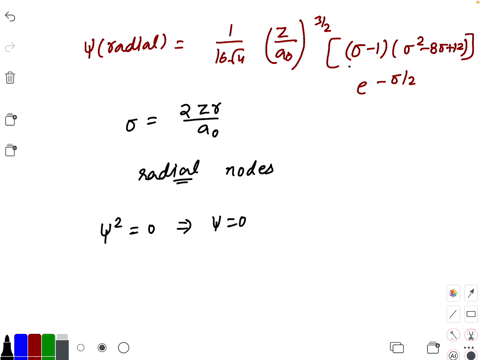 ψ(radial) = 1/(16√4) (Z/a₀)^(3/2) [(σ-1)(σ²-8σ+12)]
e^(-σ/2)
σ = 2Zr/a₀
radial nodes
ψ² = 0 ⇒ ψ=0